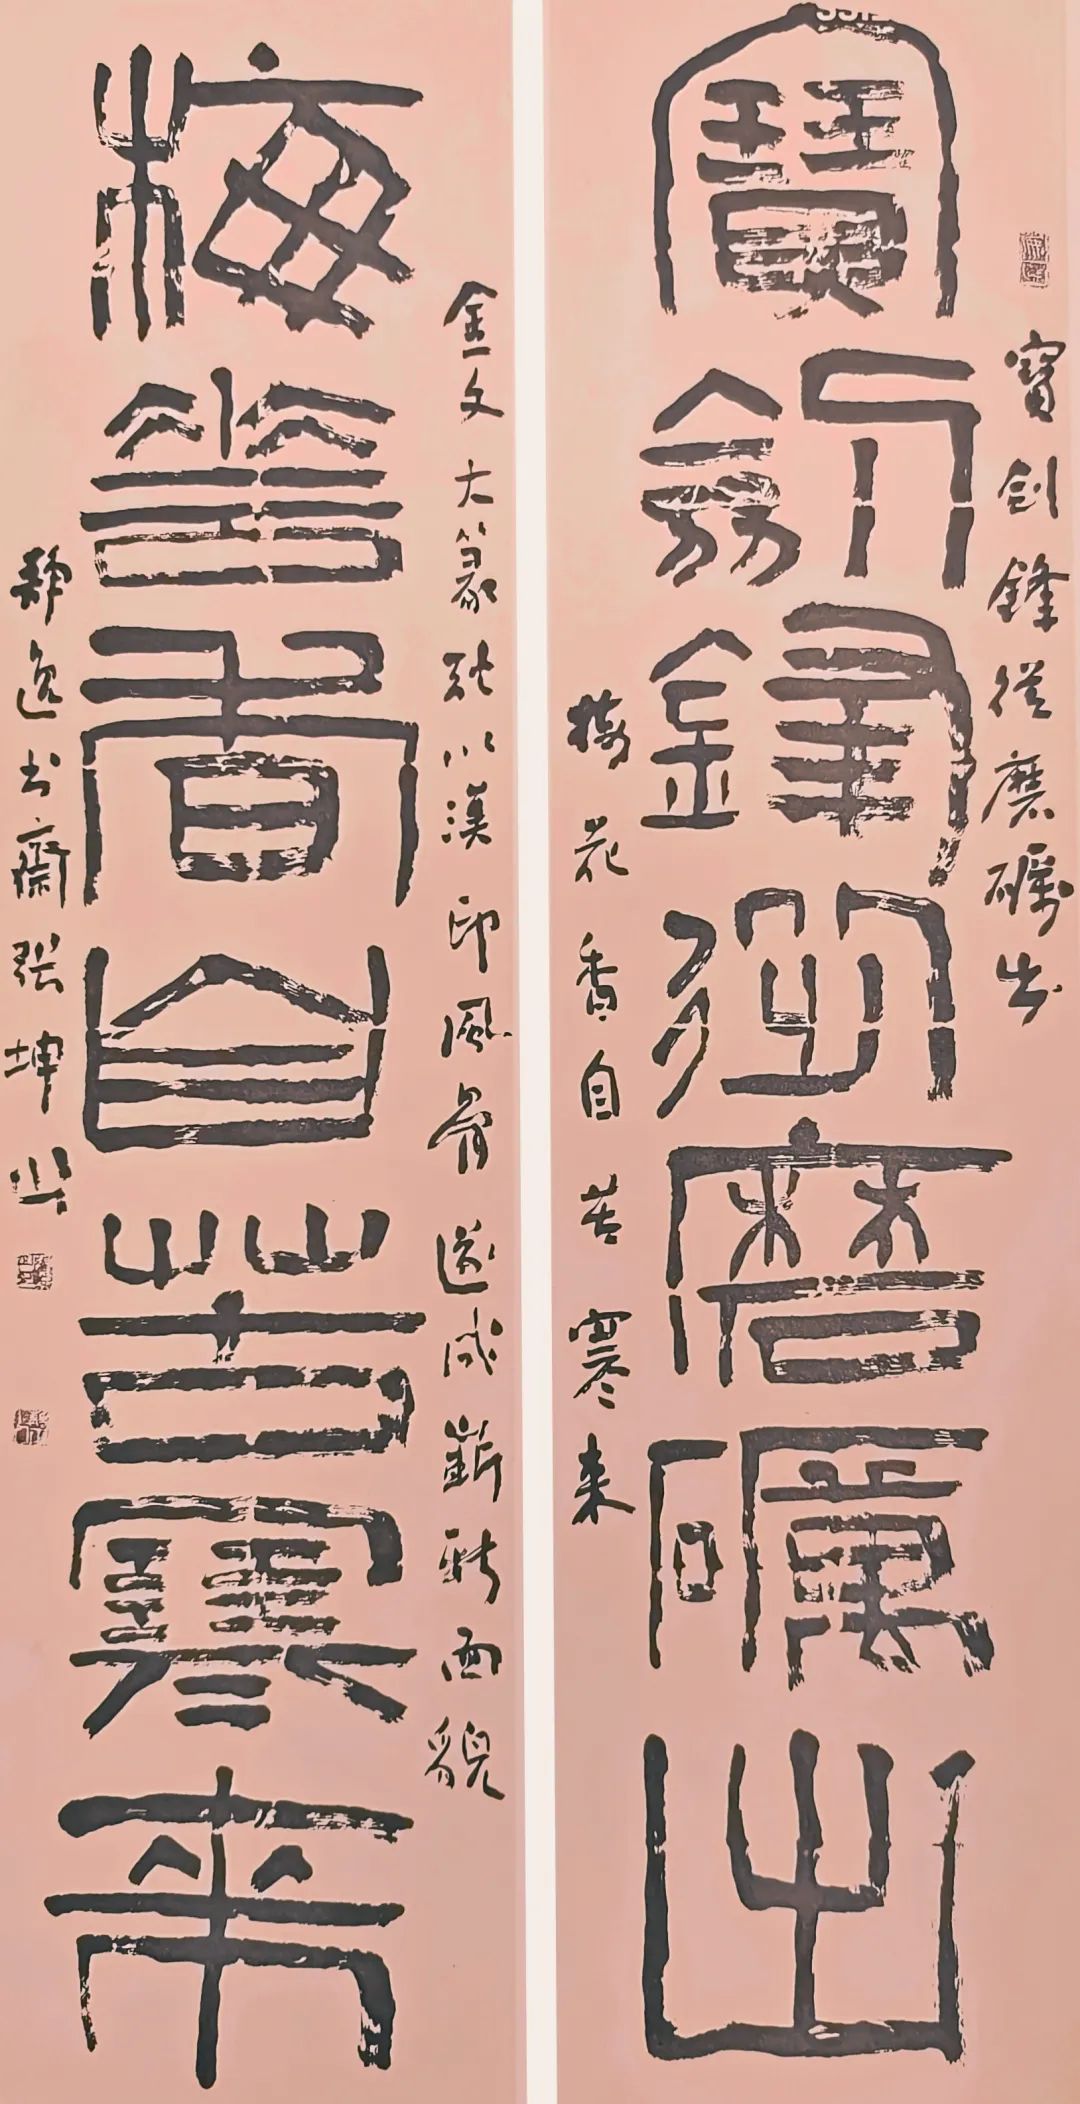 寶劍鋒從磨礪出
寶劍鋒從磨礪出
梅花香自苦寒来
梅華香自苦寒來
金文大篆融以漢印風骨遂成嶄新面貌
静逸书斋张坤山